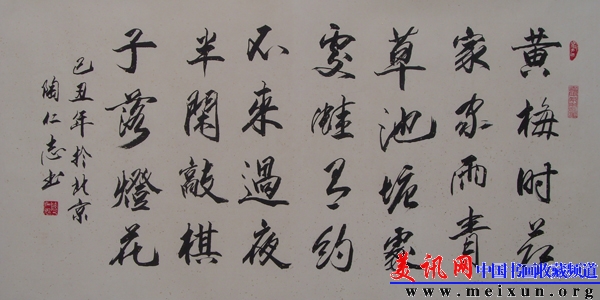 黄梅时节
家家雨青
草池塘處
處蛙有約
不來過夜
半閑敲棋
子落燈花
己丑年於北京
陶仁志书
美讯网 中国书画收藏频道
www.meixun.org